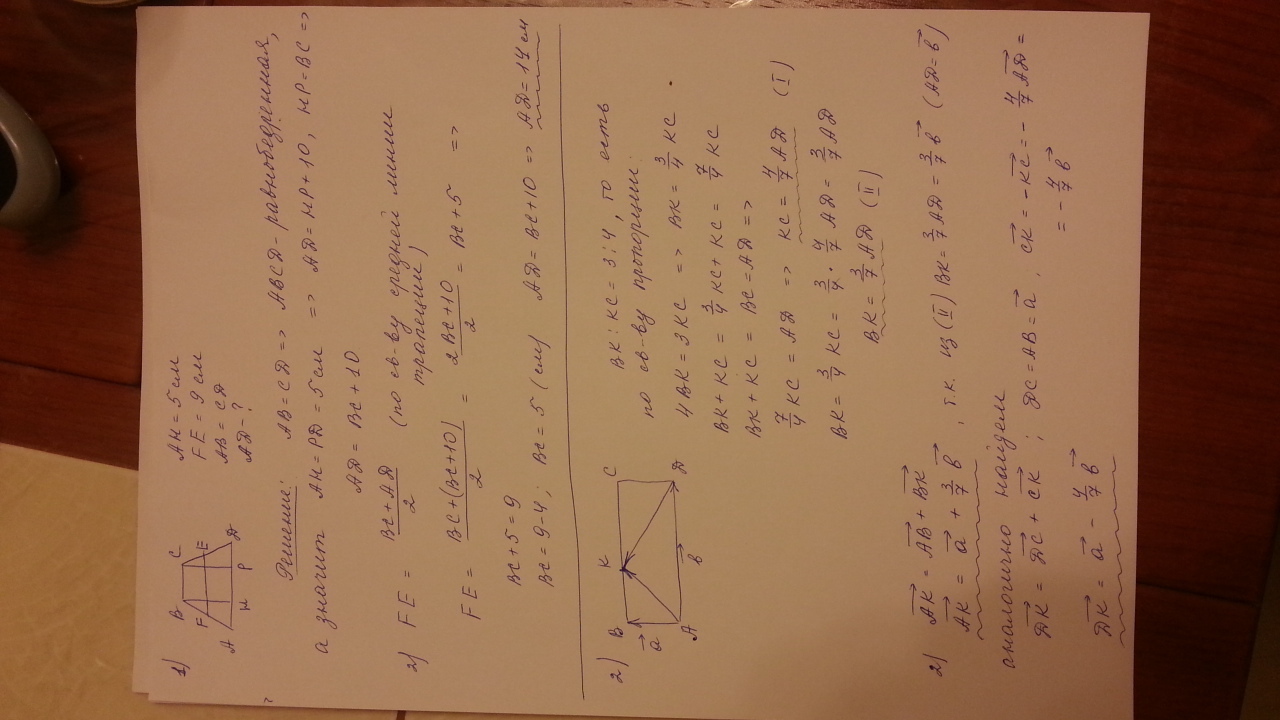 1)
B C
F E
A H P D
AH = 5 см
FE = 9 см
AB = CD
AD - ?
Решение: AB = CD => ABCD - равнобедренная,
а значит AH = PD = 5 см => AD = HP + 10, HP = BC =>
AD = BC + 10
2) FE = BC + AD / 2 (по св-ву средней линии трапеции)
FE = BC + (BC + 10) / 2 = 2BC + 10 / 2 = BC + 5 =>
BC + 5 = 9
BC = 9 - 4; BC = 5 (см) AD = BC + 10 => AD = 14 см
2)
B K C
a
A b D
BK : KC = 3 : 4, то есть
по св-ву пропорции:
4BK = 3KC => BK = 3/4 KC
BK + KC = 3/4 KC + KC = 7/4 KC
BK + KC = BC = AD =>
7/4 KC = AD => KC = 4/7 AD (I)
BK = 3/4 KC = 3/4 · 4/7 AD = 3/7 AD
BK = 3/7 AD (II)
2) AK = AB + BK
AK = a + 3/7 b, т.к. из (II) BK = 3/7 AD = 3/7 b (AD = b)
аналогично найдем
DK = DC + CK; DC = AB = a, CK = -KC = - 4/7 AD =
= - 4/7 b
DK = a - 4/7 b